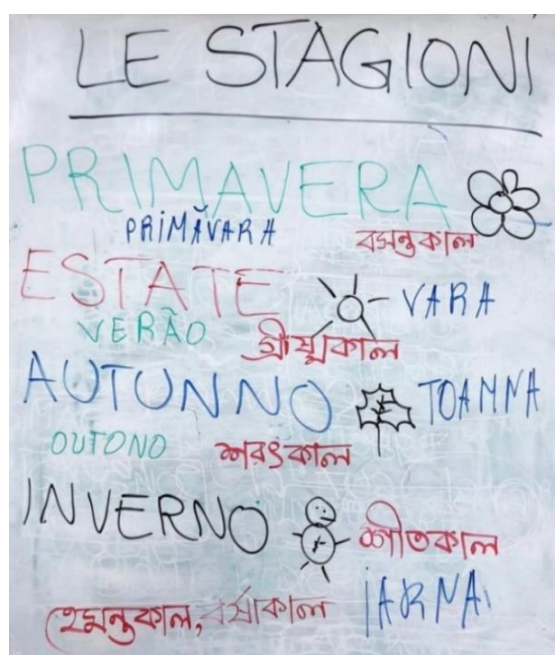 LE STAGIONI
PRIMAVERA
PRIMĂVARA বসন্তকাল
ESTATE VARA
VERÃO গ্রীষ্মকাল
AUTUNNO TOAMNA
OUTONO শরৎকাল
INVERNO শীতকাল
হেমন্তকাল, বর্ষাকাল IARNA